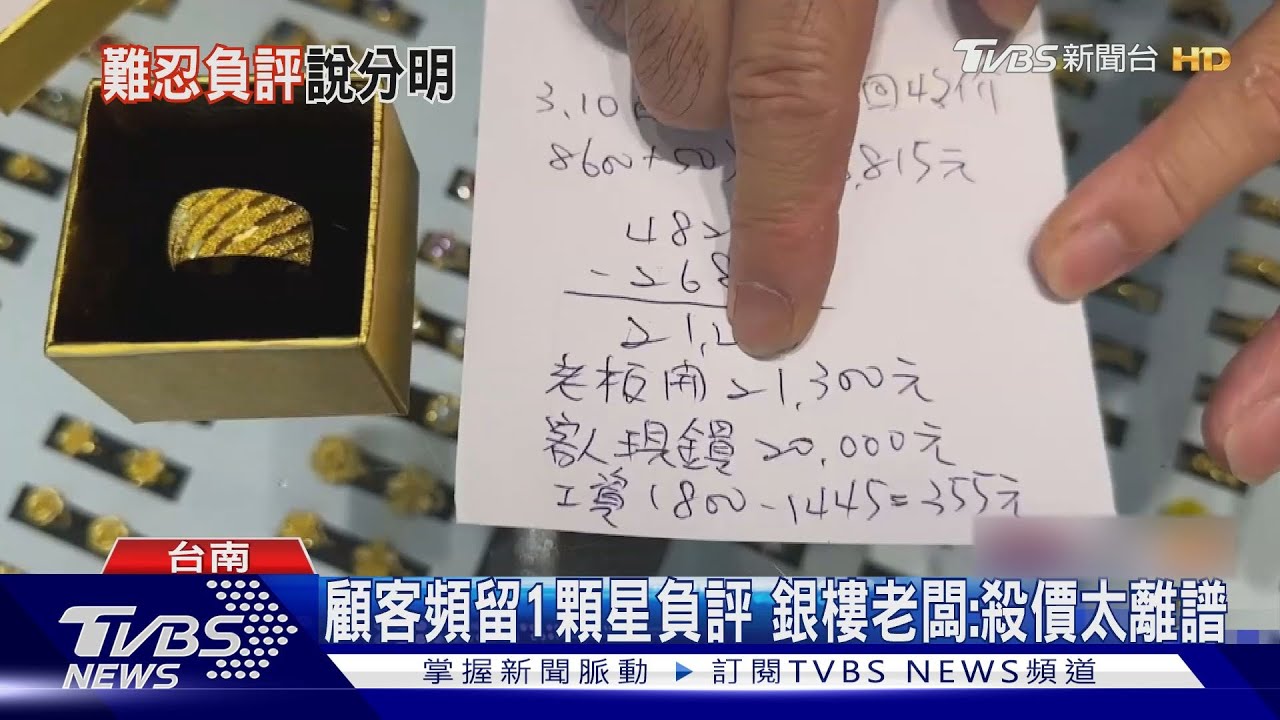 難忍負評說分明
TVBS新聞台 HD
3.10
8600+50 815元
482
-268
21,2
老板開21,300元
客人現鎖20,000元
工資1800-1445=355元
台南
顧客頻留1顆星負評 銀樓老闆:殺價太離譜
TVBS NEWS
掌握新聞脈動 ▶ 訂閱TVBS NEWS頻道